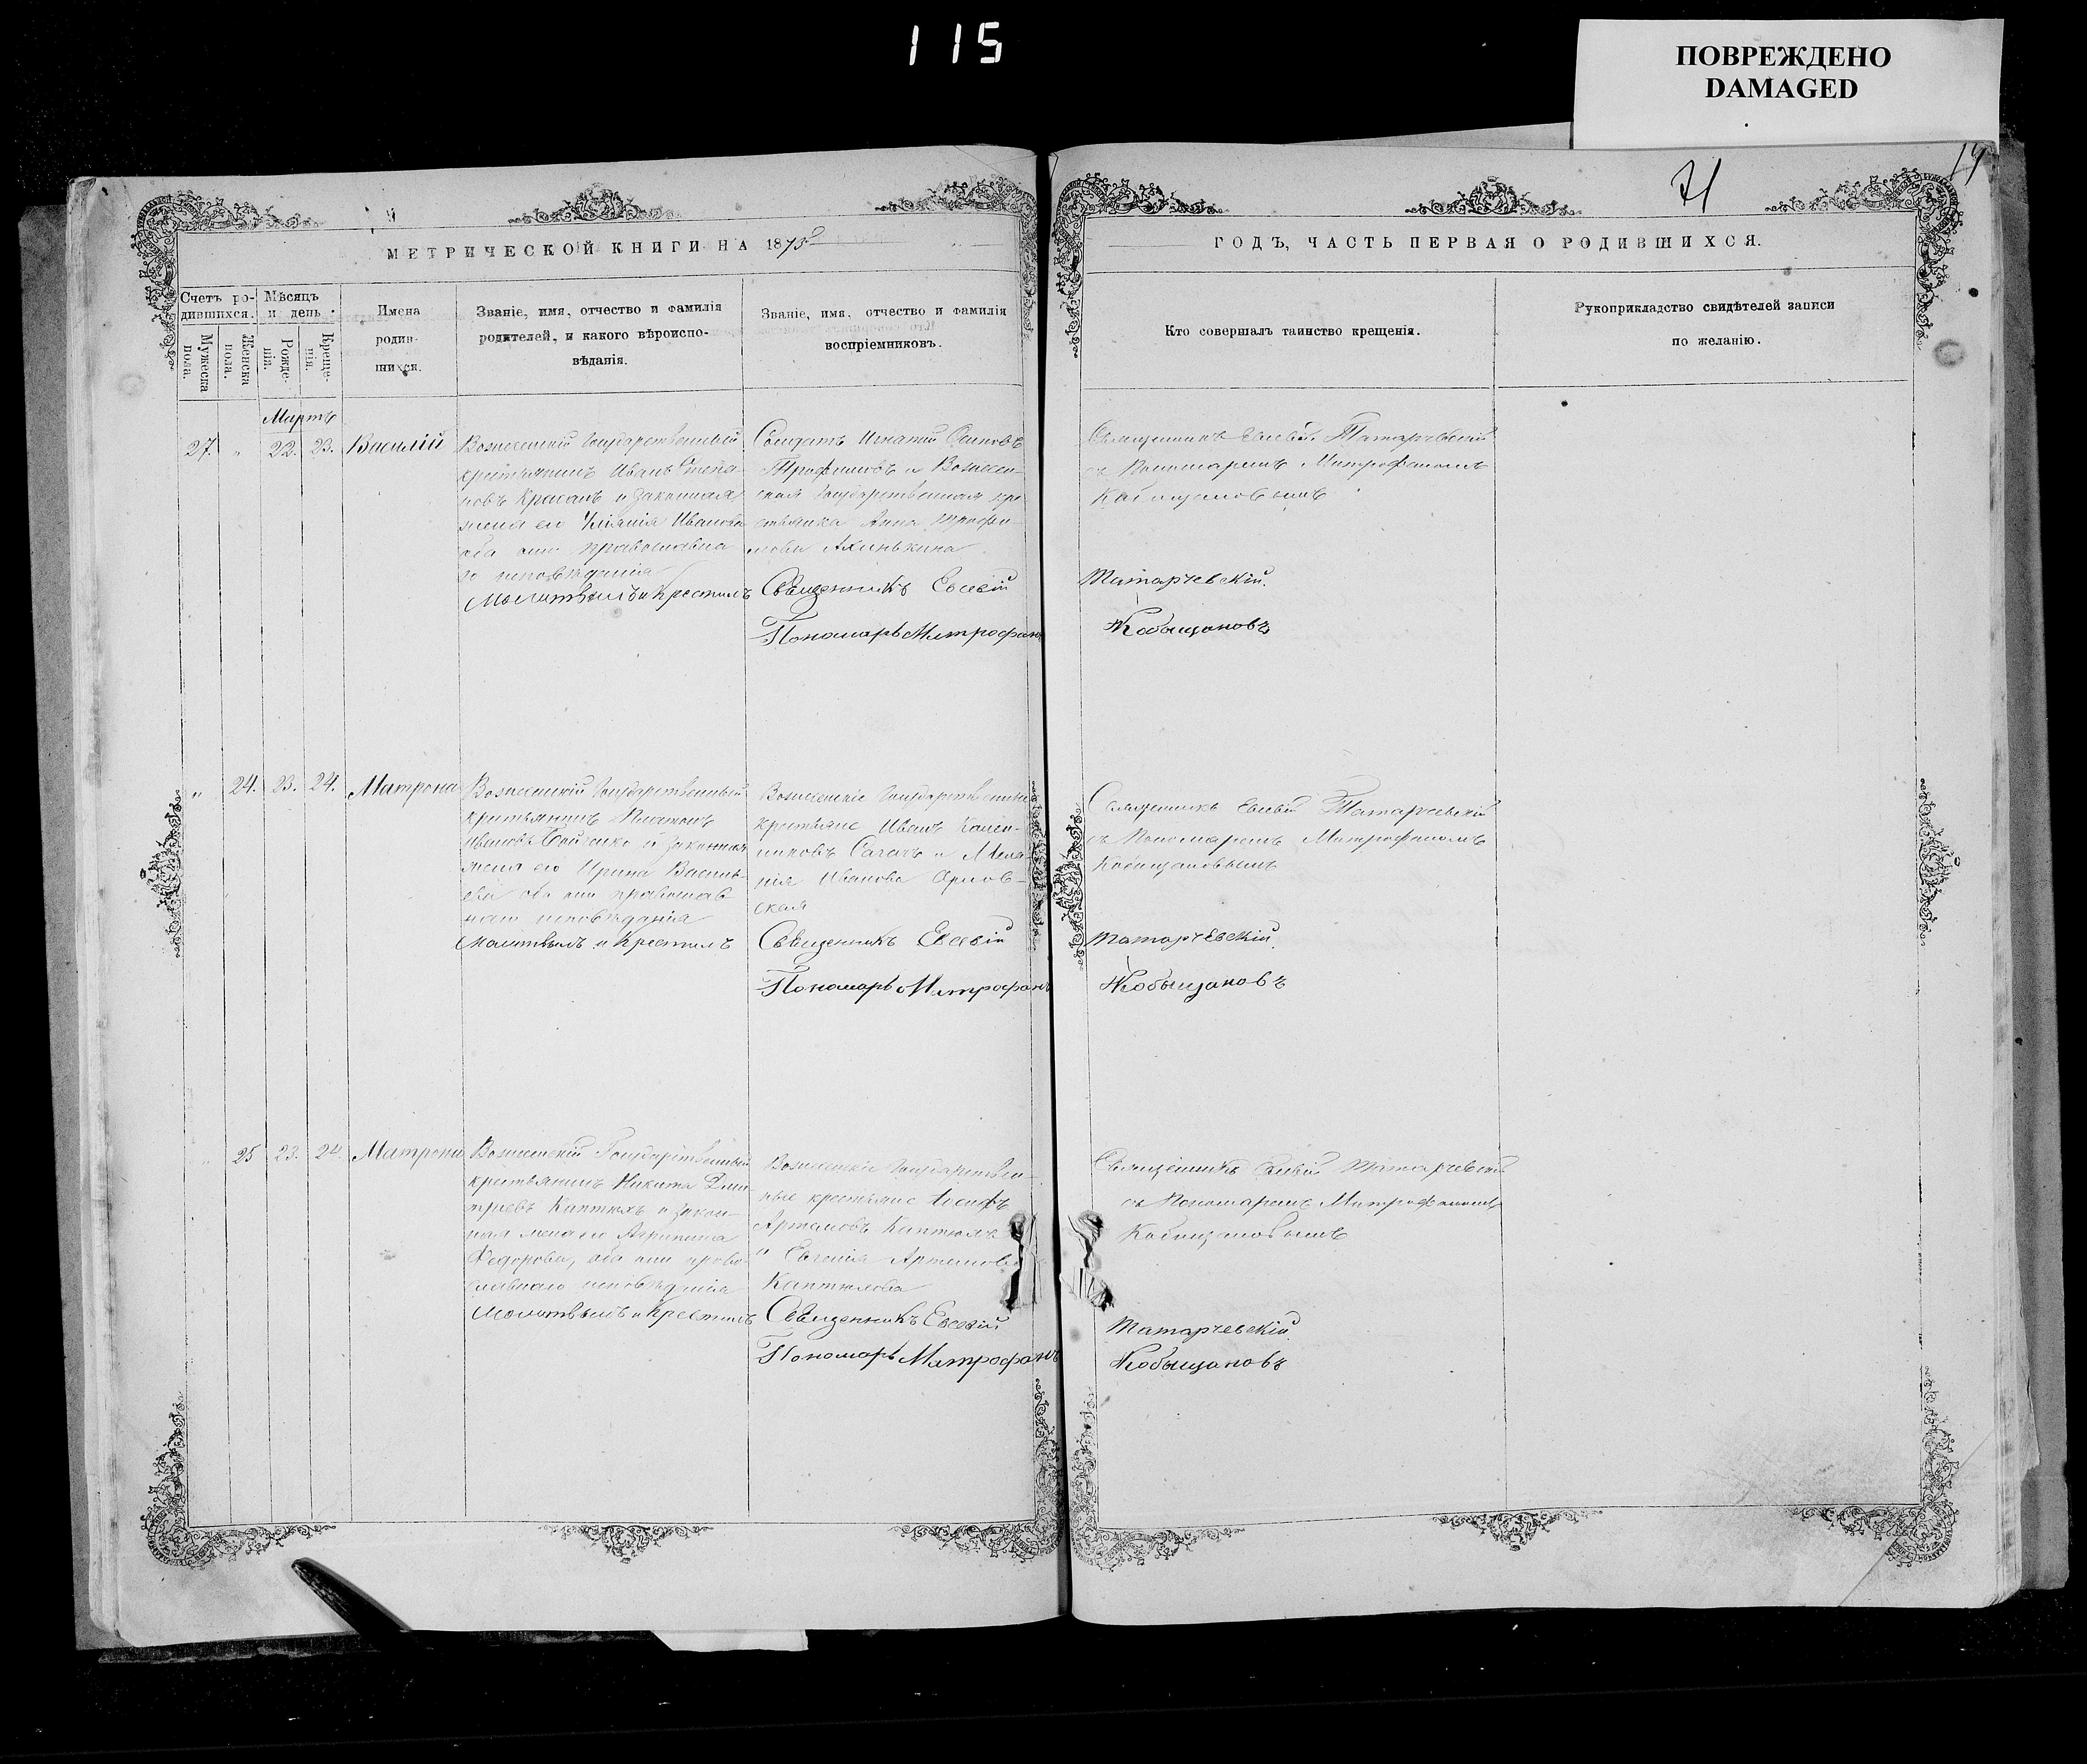 115
ПОВРЕЖДЕНО
DAMAGED
71
МЕТРИЧЕСКОЙ КНИГИ НА 1873й
ГОДЪ, ЧАСТЬ ПЕРВАЯ О РОДИВШИХСЯ.
Счетъ ро-
дившихся.
Мужеска
пола.
Женска
пола.
Мѣсяцъ
и день
Рожде-
нія.
Креще-
нія.
Имена
родив-
шихся.
Званіе, имя, отчество и фамилія
родителей, и какого вѣроиспо-
вѣданія.
Званіе, имя, отчество и фамилія
воспріемниковъ.
Кто совершалъ таинство крещенія.
Рукоприкладство свидѣтелей записи
по желанію.
Мартъ
27. " 22. 23. Василій
Вознесенскій Государственный
крестьянинъ Иванъ Степа-
новъ Красанъ и законная
жена его Иванова
оба они православна
го исповѣданія
Молитвилъ и Крестилъ
Солдатъ Игнатій Осиповъ
Трофимовъ и Вознесен-
ская Государственная кре
стьянка Анна Трофи-
мова Ахинькина
Священникъ Евсевій
Пономарь Митрофанъ
Священникъ Евсевій Татарчевскій
съ Пономаремъ Митрофаномъ
Кобищановымъ
Татарчевскій.
Кобыщановъ
" 24. 23. 24. Матрона
Вознесенскій Государственный
крестьянинъ Платонъ
Ивановъ Бойченко и законная
жена его Ирина Василь-
ева оба они православ
наго исповѣданія
Молитвилъ и Крестилъ
Вознесенскіе Государственные
крестьяне Иванъ
Сагачъ и Мела-
нія Иванова Орлов-
ская
Священникъ Евсевій
Пономарь Митрофанъ
Священникъ Евсевій Татарчевскій
съ Пономаремъ Митрофаномъ
Кобищановымъ
Татарчевскій.
Кобыщановъ
" 25 23. 24. Матрона
Вознесенскій Государственный
крестьянинъ Никита Дми-
тріевъ Каптюхъ и закон-
ная жена его Агрипина
Федорова, оба они право-
славнаго исповѣданія
Молитвилъ и Крестилъ
Вознесенскіе Государствен-
ные крестьяне Іосифъ
Артамовъ Каптюхъ
и Евгенія Артамова
Каптюхова
Священникъ Евсевій
Пономарь Митрофанъ
Священникъ Евсевій Татарчевскій
съ Пономаремъ Митрофаномъ
Кобищановымъ
Татарчевскій.
Кобыщановъ